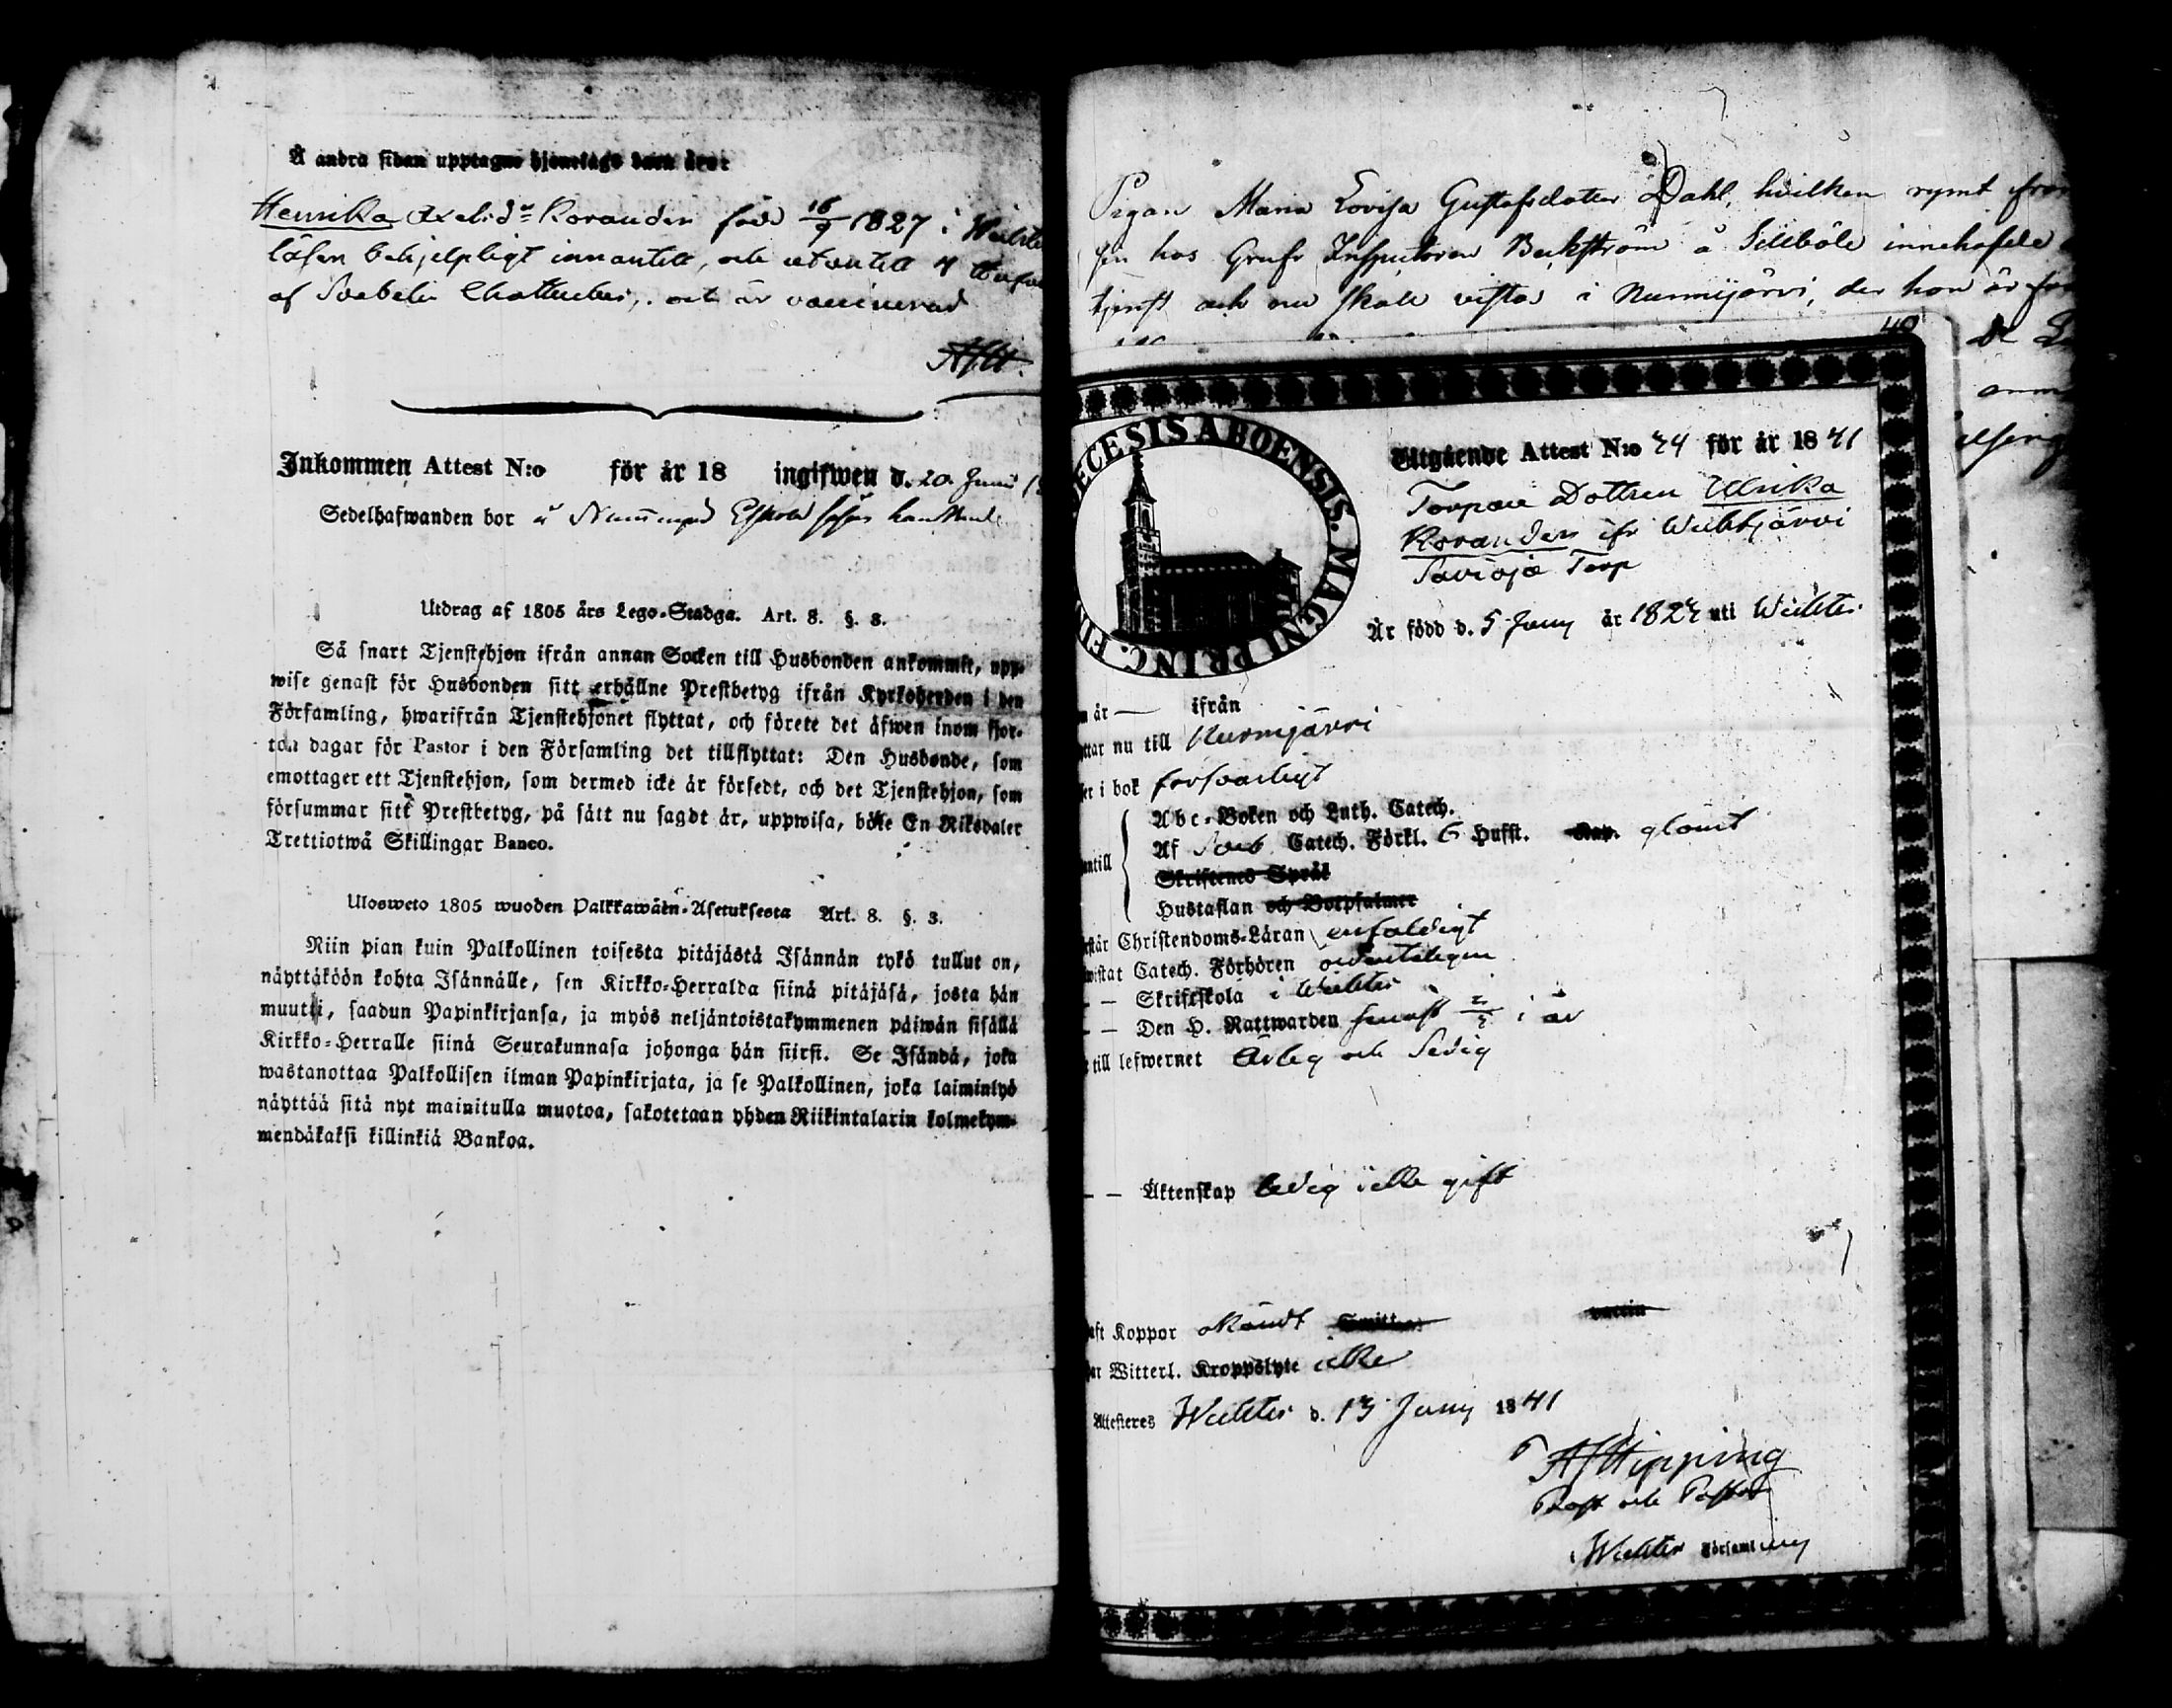 Å andra sidan upptagne hjonelags barn äro:
Henrika Axelsd:r Korander född 16/9 1827 i Wichtis
läser behjelpligt innantill, och utantill 4
af Svebelii Chatheches, och är vaccinerad
AJH.
Inkommen Attest N:o för år 18 ingifwen d. 20 Juni
Sedelhafwanden bor å
Utdrag af 1805 års Lego-Stadga. Art. 8. §. 3.
Så snart Tjenstehjon ifrån annan Socken till Husbonden ankommit, upp-
wise genast för Husbonden sitt erhållne Prestbetyg ifrån Kyrkoherden i den
Församling, hwarifrån Tjenstehjonet flyttat, och förete det äfwen inom fjor-
ton dagar för Pastor i den Församling det tillflyttat: Den Husbonde, som
emottager ett Tjenstehjon, som dermed icke är försedt, och det Tjenstehjon, som
försummar sitt Prestbetyg, på sätt nu sagdt är, uppwisa, böte En Riksdaler
Trettiotwå Skillingar Banco.
Ulosweto 1805 wuoden Palkkawäen-Asetuksesta Art. 8. §. 3.
Niin pian kuin Palkollinen toisesta pitäjästä Isännän tykö tullut on,
näyttäköön kohta Isännälle, sen Kirkko-Herralda siinä pitäjäsä, josta hän
muutti, saadun Papinkirjansa, ja myös neljäntoistakymmenen päiwän sisällä
Kirkko-Herralle siinä Seurakunnasa johonga hän siirsi. Se Isändä, joka
wastanottaa Palkollisen ilman Papinkirjata, ja se Palkollinen, joka laiminlyö
näyttää sitä nyt mainitulla muotoa, sakotetaan yhden Riikintalarin kolmekym-
mendäkaksi killinkiä Bankoa.
Pigan Maria Lovisa Gustafsdotter Dahl, hvilken rymt från
sin hos Grufv Inspectoren Beckström å Sillböle innehafde
tjenst och nu skall vistas i Nurmijärvi, der hon är
40
ECESIS ABOENSIS. MAGNI PRINC. FIN
Utgående Attest N:o 74 för år 1841
Torpare Dottren Ulrika
Korander ifr Wichtjärvi
Savioja Torp
Är född d. 5 Juny år 1824 uti Wichtis
n år — ifrån
ttar nu till Nurmijärvi
er i bok försvarligt
Abc-Boken och Luth. Catech.
antill Af Sveb. Catech. Förkl. 6 Hufst. Kap. glömt
Skriftenes Språk
Hustaflan och Botpsalmer
rstår Christendoms-Läran enfaldigt
wistat Catech. Förhören ordenteligen
— — Skriftskola i Wichtis
— — Den H. Nattwarden senast i år
till lefwernet Ärlig och Sedig
— — Äktenskap ledig icke gift
aft Koppor okändt
ar Witterl. Kroppslyte icke
Attesteres Wichtis d. 13 Juny 1841
AJHipping
Prost och Pastor
Wichtis Församling